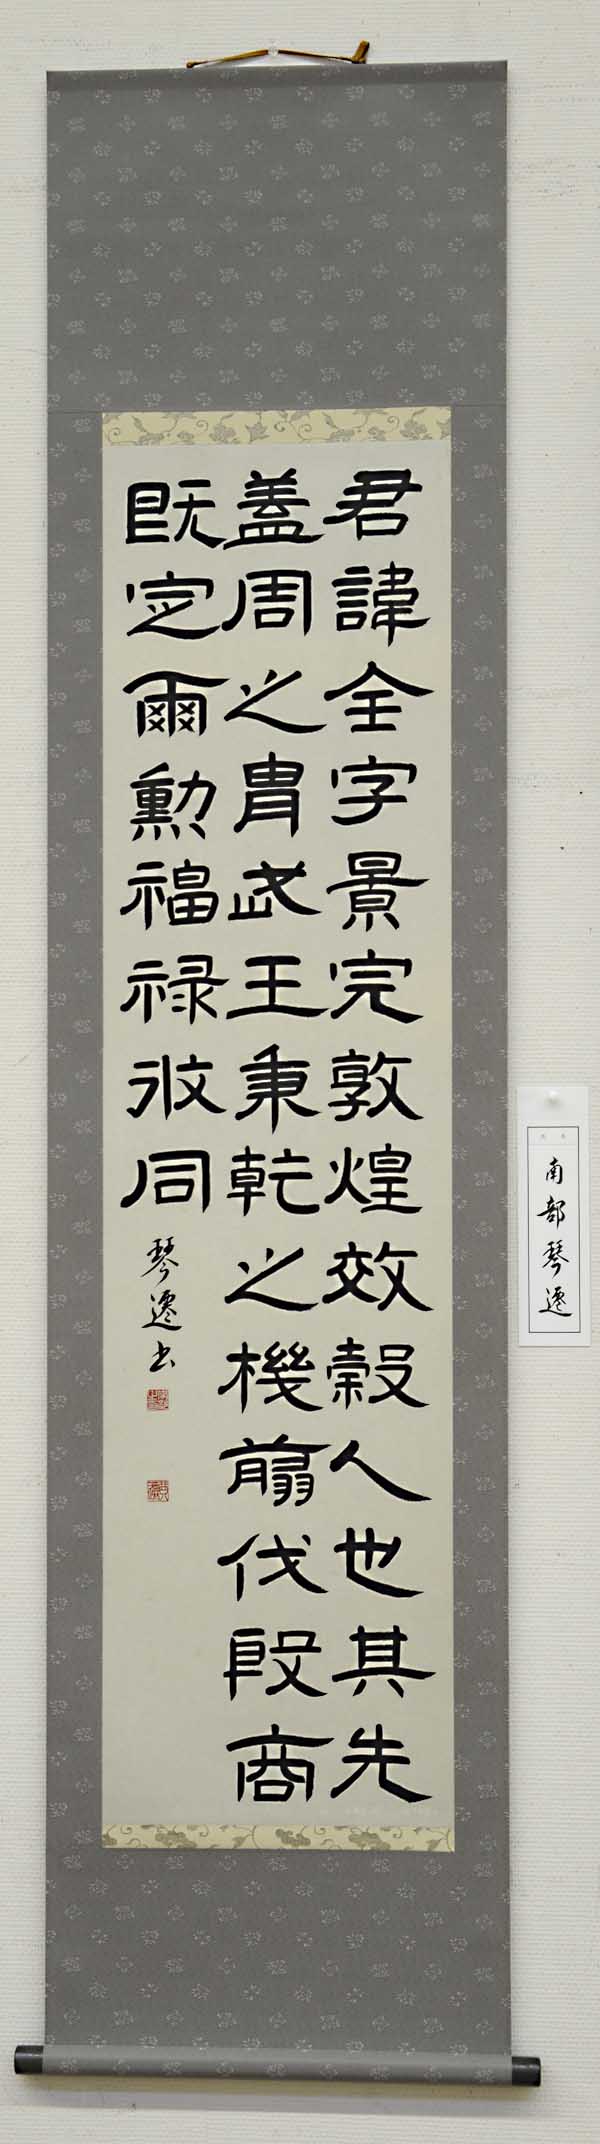 君諱全字景完敦煌效穀人也其先
蓋周之胄武王秉乾之機翦伐殷商
既定爾勲福禄攸同
琴遷書
南部琴遷